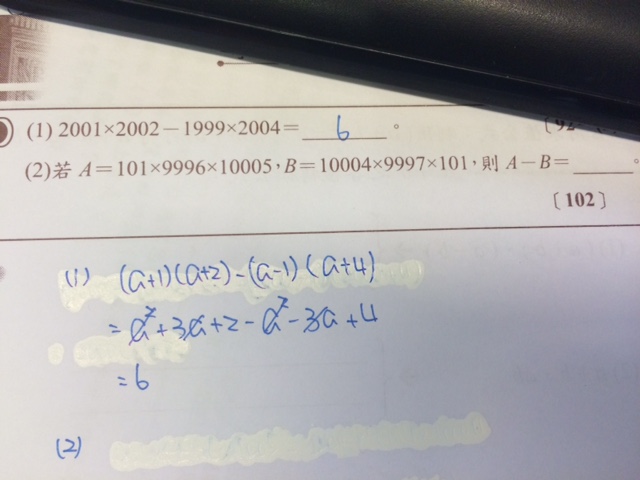 (1) 2001×2002－1999×2004＝ 6 。
(2)若 A＝101×9996×10005，B＝10004×9997×101，則 A－B＝ ______。
〔102〕
(1) (a+1)(a+2)-(a-1)(a+4)
= a²+3a+2-a²-3a+4
= 6
(2)